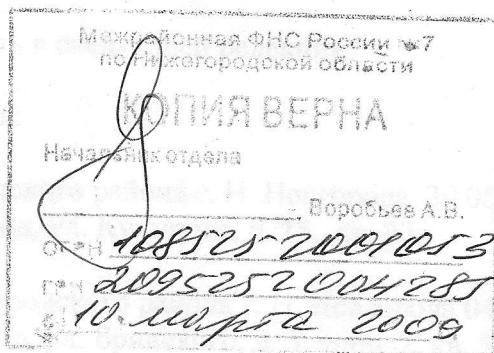 Межрайонная ФНС России №7
по Нижегородской области
КОПИЯ ВЕРНА
Начальник отдела
Воробьев А.В.
ОГРН 1085252001053
ГРН 2095252004285
10 марта 2009